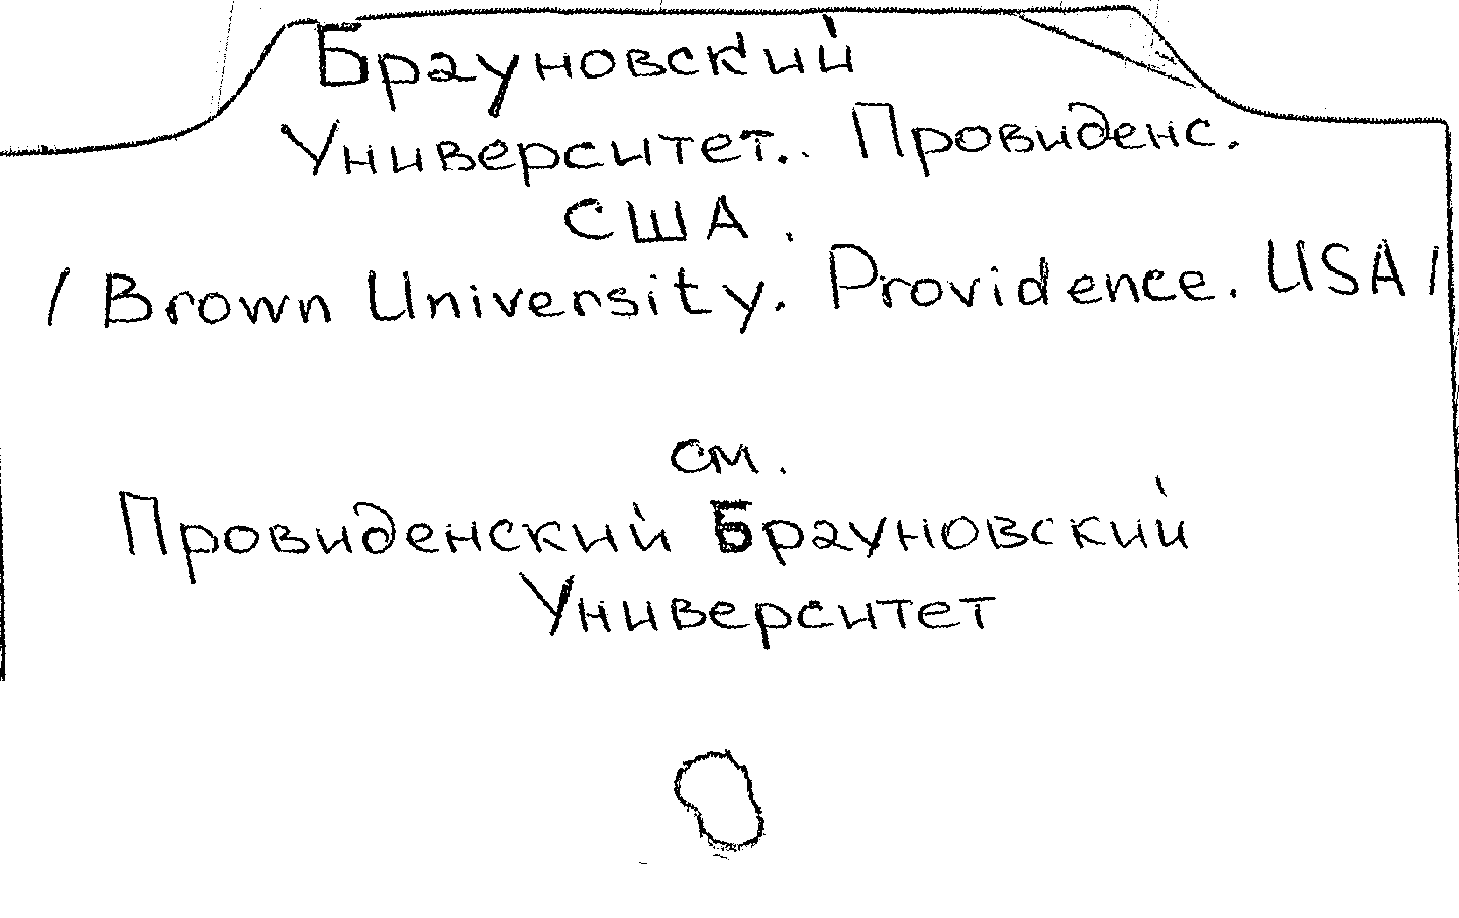 Брауновский
Университет.. Провиденс.
США.
/ Brown University. Providence. USA /
см.
Провиденский Брауновский
Университет